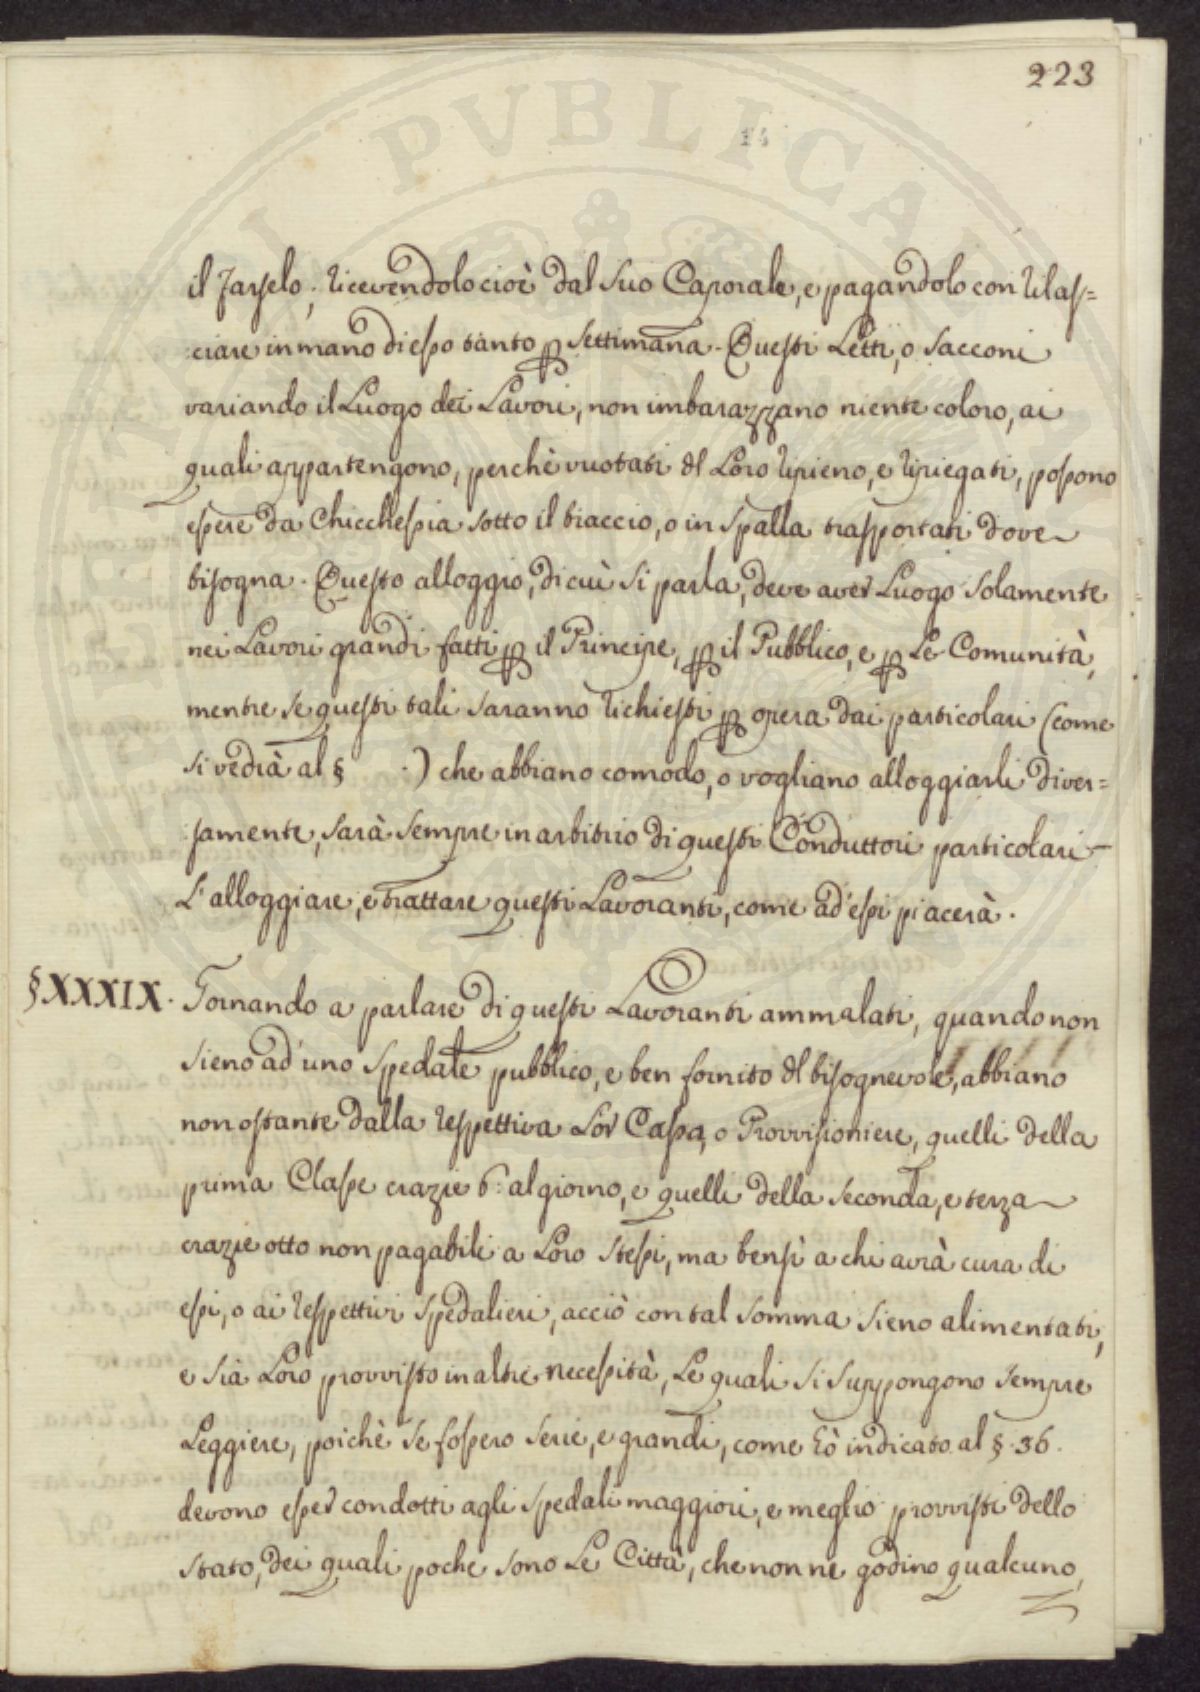 223
14
il farselo; ricevendolo cioè dal suo Caporale, e pagandolo con rilas=
ciare in mano di esso tanto p settimana. Questi Letti, o sacconi
variando il Luogo dei Lavori, non imbarazzano niente coloro, ai
quali appartengono, perchè vuotati del Loro ripieno, e ripiegati, possono
essere da chicchessia sotto il braccio, o in spalla trasportati dove
bisogna. Questo alloggio, di cui si parla, deve aver Luogo solamente
nei Lavori grandi fatti p il Principe, p il Pubblico, e p Le Comunità,
mentre se questi tali saranno richiesti p opera dai particolari (come
si vedrà al § .) che abbiano comodo, o vogliano alloggiarli diver=
samente, sarà sempre in arbitrio di questi Conduttori particolari
L'alloggiare, e trattare questi Lavoranti, come ad'essi piacerà.
§XXXIX. Tornando a parlare di questi Lavoranti ammalati, quando non
sieno ad'uno spedale pubblico, e ben fornito del bisognevole, abbiano
non ostante dalla respettiva Lor Cassa, o Provvisioniere, quelli della
prima Classe crazie 6: al giorno, e quelli della seconda, e terza
crazie otto non pagabili a Loro stessi, ma bensì a chi avrà cura di
essi, o ai respettivi spedalieri, acciò con tal somma sieno alimentati,
e sia Loro provvisto in altre necessità, Le quali si suppongono sempre
Leggiere, poichè se fossero serie, e grandi, come hò indicato al §. 36.
devono esser condotti agli spedali maggiori, e meglio provvisti dello
stato, dei quali poche sono Le Città, che non ne godino qualcuno,